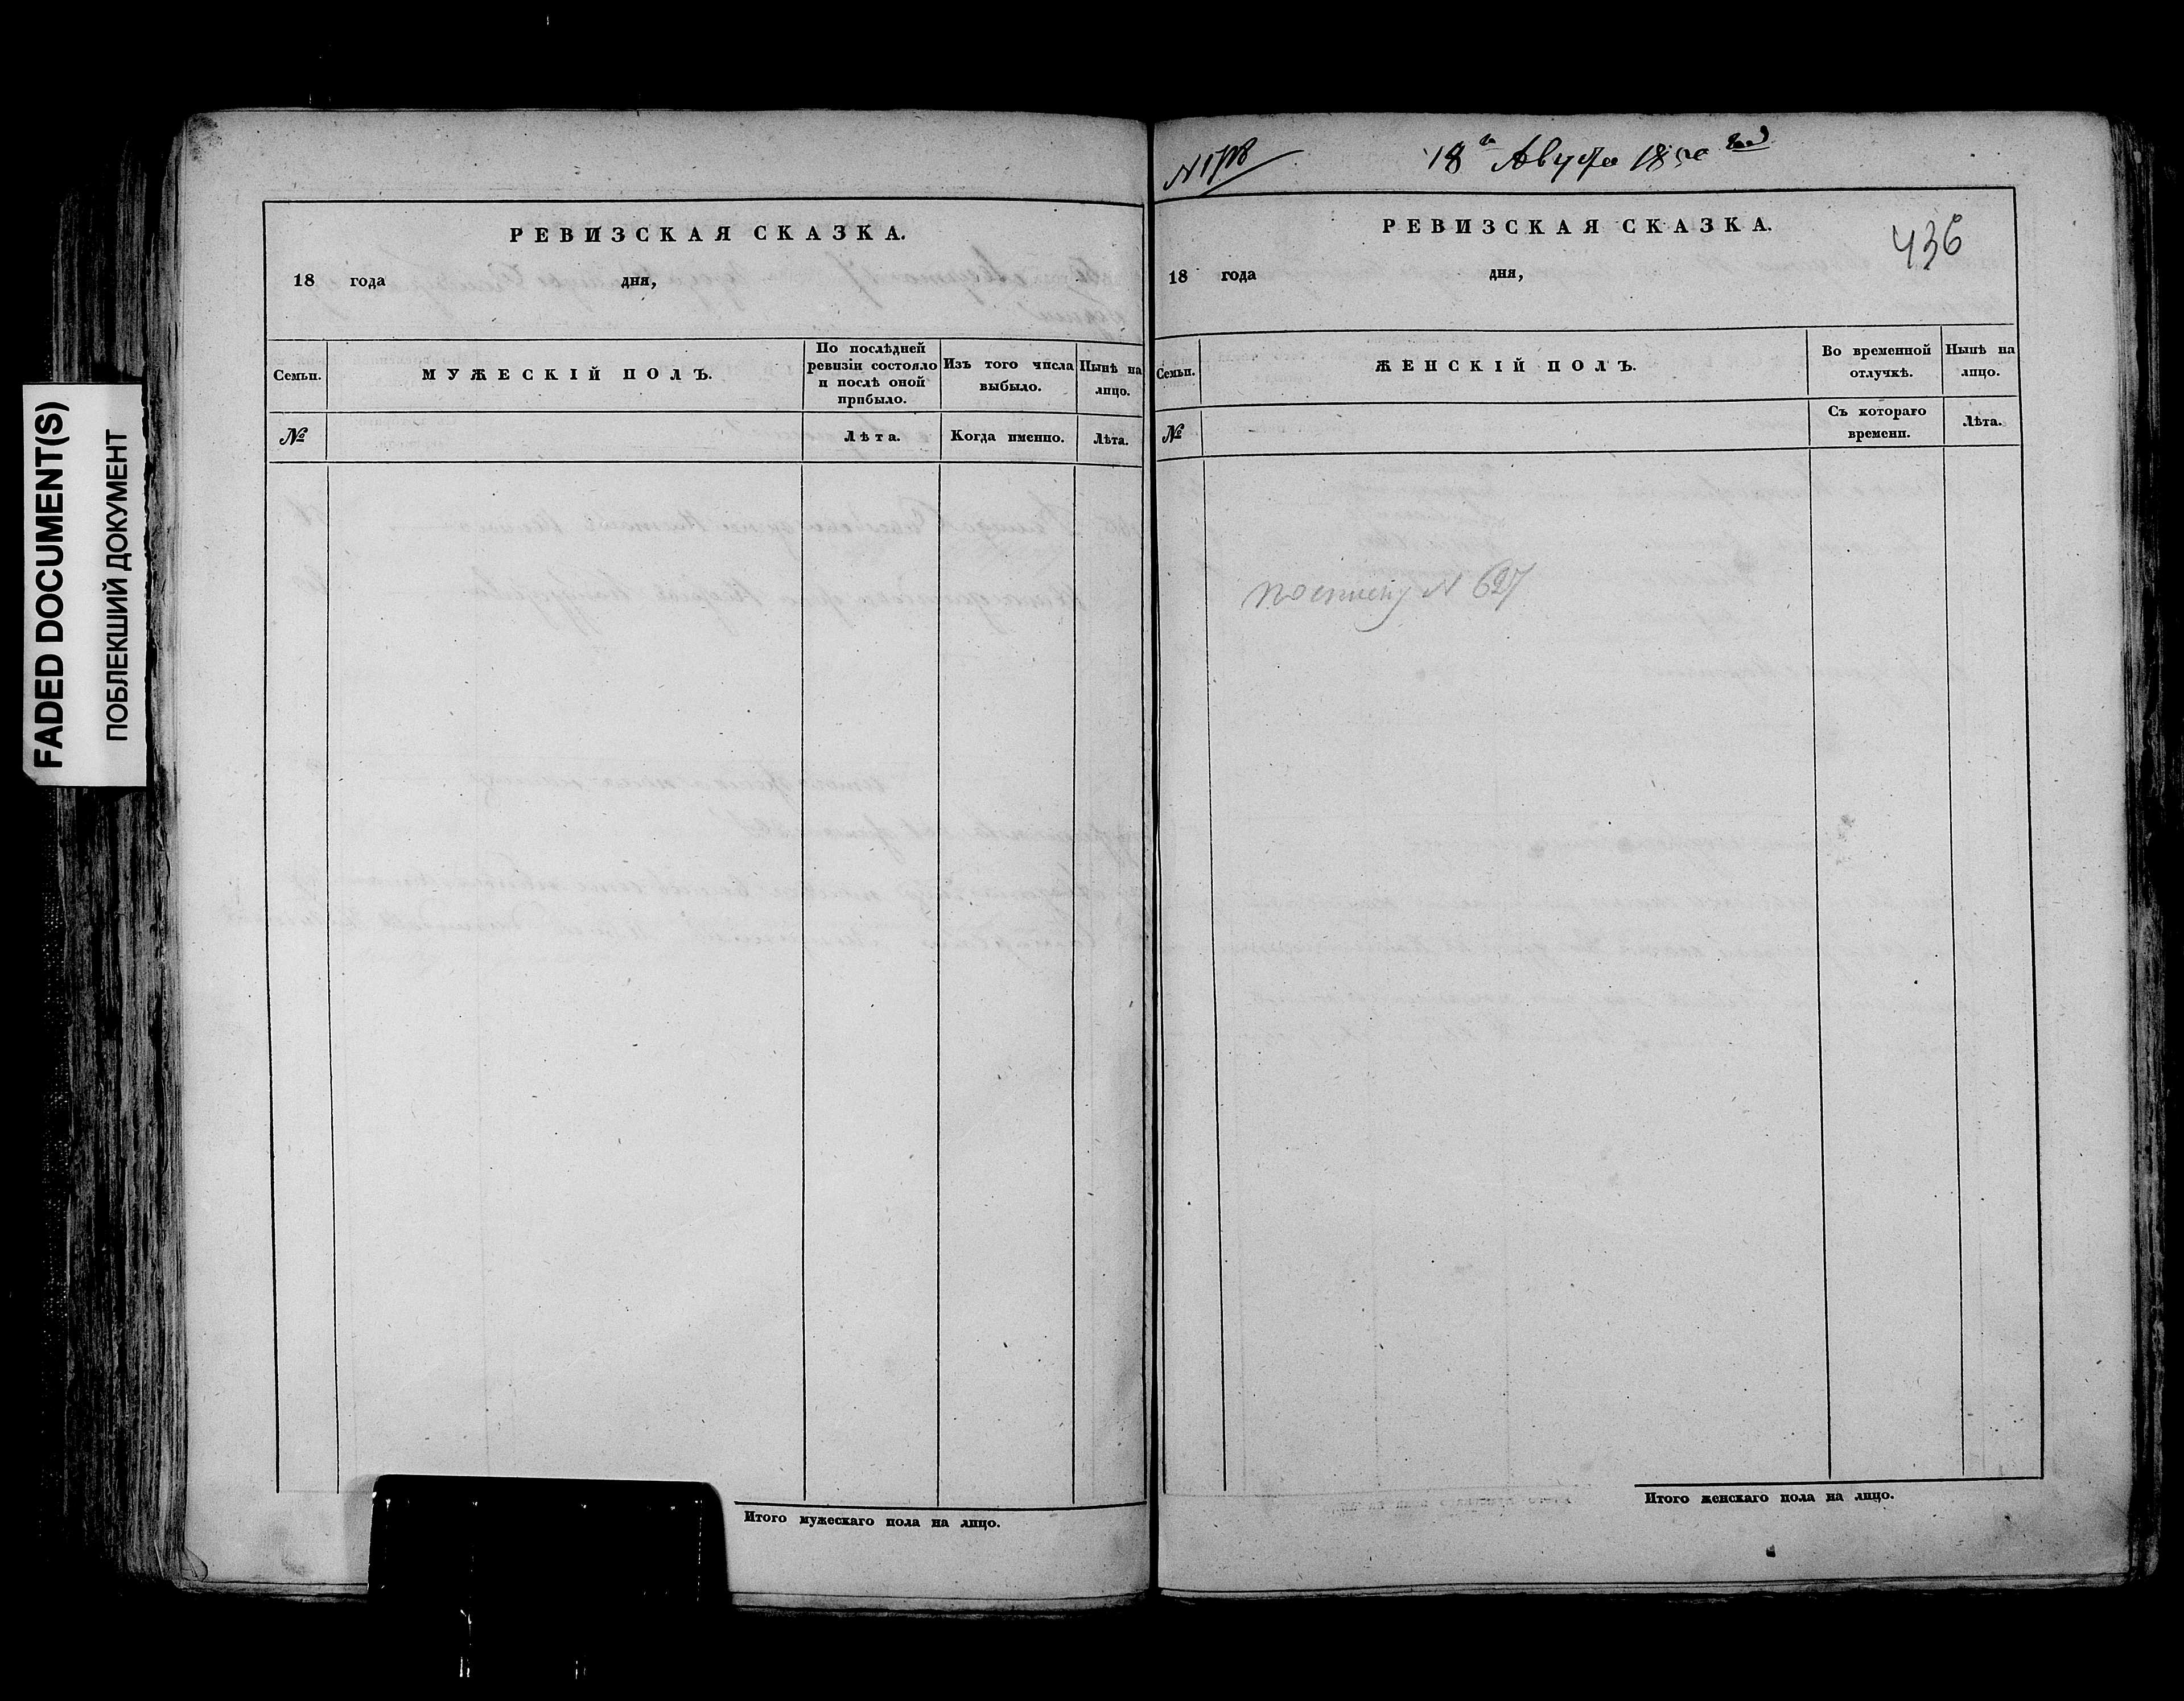 FADED DOCUMENT(S)
ПОБЛЕКШИЙ ДОКУМЕНТ
РЕВИЗСКАЯ СКАЗКА.
18 года дня,
Семьи.
МУЖЕСКІЙ ПОЛЪ.
По послѣдней
ревизіи состояло
и послѣ оной
прибыло.
Изъ того числа
выбыло.
Нынѣ на
лицо.
№
Лѣта.
Когда именно.
Лѣта.
Итого мужескаго пола на лицо.
18 Августа 1850
РЕВИЗСКАЯ СКАЗКА.
436
18 года дня,
Семьи.
ЖЕНСКІЙ ПОЛЪ.
Во временной
отлучкѣ.
Нынѣ на
лицо.
№
Съ котораго
времени.
Лѣта.
по списку N 627
Итого женскаго пола на лицо.